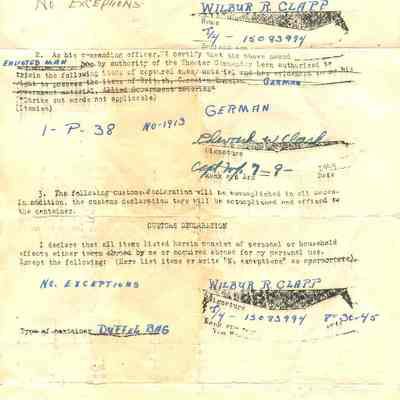 NO EXCEPTIONS
WILBUR R. CLAPP
Name
T/4 - 15093994
2. As his commanding officer, I certify that the above named
ENLISTED MAN has by authority of the Theater Commander been authorized to
retain the following items of captured enemy material and has evidenced to me his
right to possess the items of British, Canadian Russian, GERMAN
Government material, Allied Government material*
*Strike out words not applicable)
(Itemize)
GERMAN
1 - P - 38 NO-1913
Signature
Capt
1945
Date
3. The following customs declaration will be accomplished in all cases.
In addition, the customs declaration tags will be accomplished and affixed to
the container.
CUSTOMS DECLARATION
I declare that all items listed herein consist of personal or household
effects either taken abroad by me or acquired abroad for my personal use.
Except the following: (Here list items or write "No exceptions" as appropriate).
NO. EXCEPTIONS
WILBUR R. CLAPP
Signature
T/4 - 15093994 8-30-45
Rank and
Type of container DUFFEL BAG